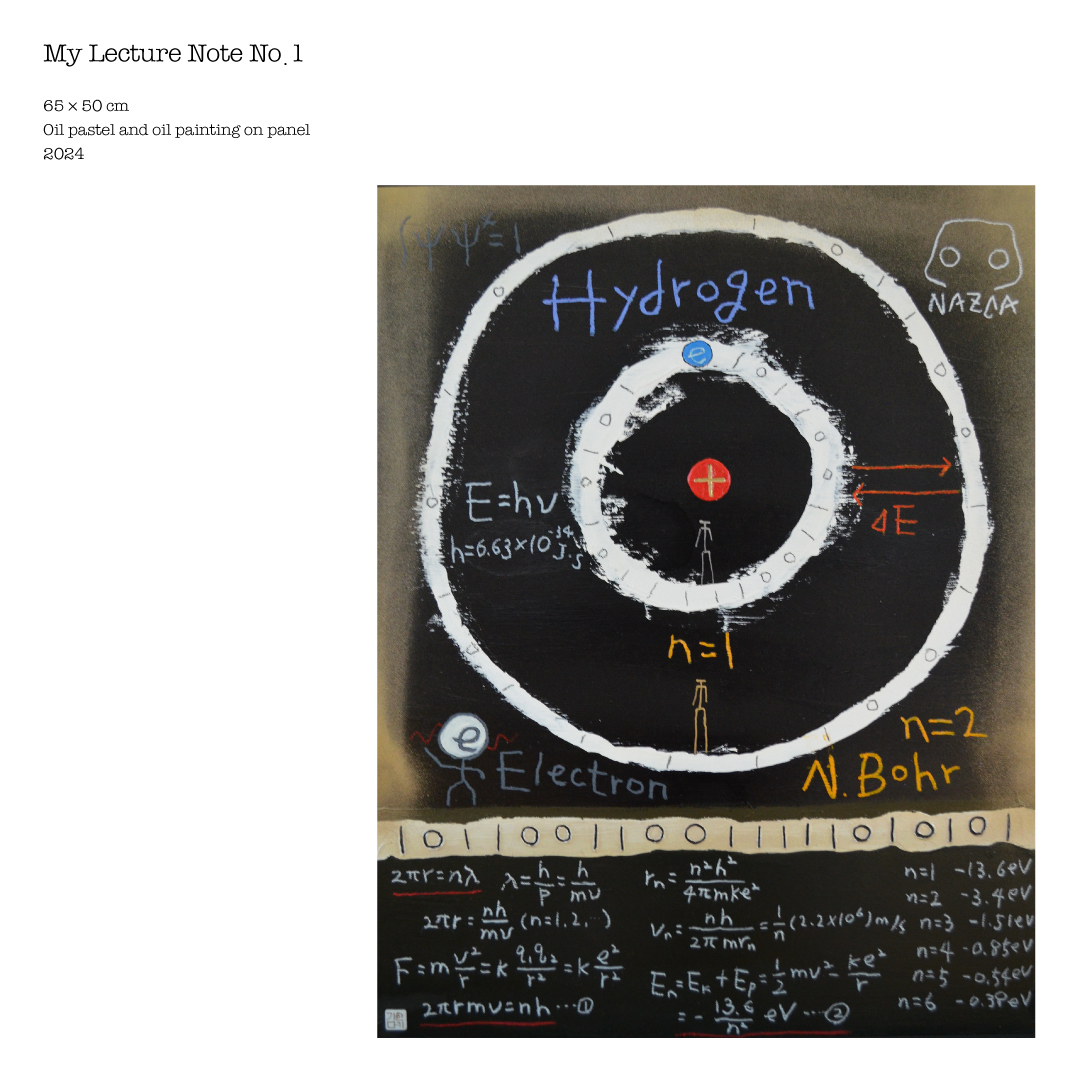 My Lecture Note No. 1
65 × 50 cm
Oil pastel and oil painting on panel
2024
∫ψψ*=1
NAZCA
Hydrogen
e
+
E=hν
h=6.63×10⁻³⁴J.s
ΔE
n=1
n=2
N.Bohr
e
Electron
|O|||OO||OO||||||O|O|O|
2πr=nλ
λ=h/p=h/mv
2πr=nh/mv (n=1,2,···)
F=m v²/r=k q₁q₂/r²=k e²/r²
2πrmv=nh ···①
rₙ=n²h²/4πmke²
vₙ=nh/2πmrₙ=1/n(2.2×10⁶)m/s
Eₙ=Eₖ+Eₚ=1/2mv²-ke²/r
=-13.6/n² eV ···②
n=1 -13.6eV
n=2 -3.4eV
n=3 -1.51eV
n=4 -0.85eV
n=5 -0.54eV
n=6 -0.38eV